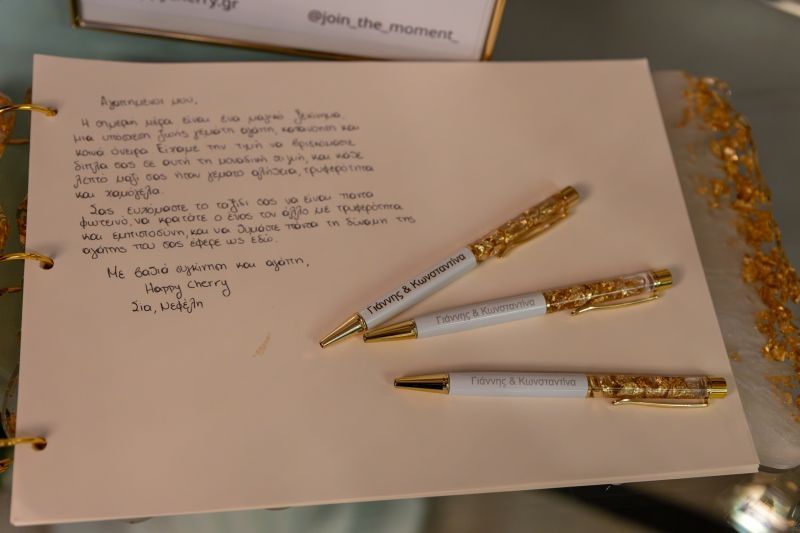 cherry.gr
@join_the_moment_
Αγαπημένοι μου,
Η σημερινή μέρα είναι ένα μαγικό ξεκίνημα,
μια υπόσχεση ζωής γεμάτη αγάπη, κατανόηση και
κοινά όνειρα. Είχαμε την τιμή να βρισκόμαστε
δίπλα σας σε αυτή τη μοναδική στιγμή, και κάθε
λεπτό μαζί σας ήταν γεμάτο αλήθεια, τρυφερότητα
και χαμόγελα.
Σας ευχόμαστε το ταξίδι σας να είναι πάντα
φωτεινό, να κρατάτε ο ένας τον άλλο με τρυφερότητα
και εμπιστοσύνη, και να θυμάστε πάντα τη δύναμη της
αγάπης που σας έφερε ως εδώ.
Με βαθιά συγκίνηση και αγάπη,
Happy Cherry
Σία, Νεφέλη
Γιάννης & Κωνσταντίνα
Γιάννης & Κωνσταντίνα
Γιάννης & Κωνσταντίνα